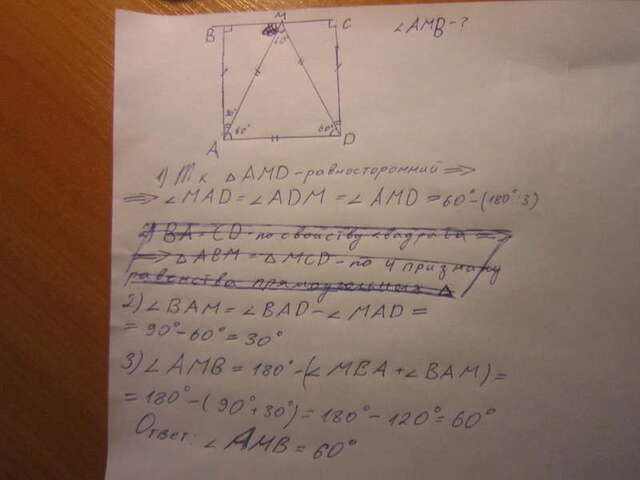 M
B
C
∠AMB-?
60°
30°
60°
60°
A
D
1) Т к △AMD-равносторонний ⇒
⇒ ∠MAD=∠ADM=∠AMD=60°-(180°:3)
2) BA=CD-по свойству квадрата ⇒
⇒ △ABM=△MCD-по 4 признаку
равенства прямоугольных △
2) ∠BAM=∠BAD-∠MAD=
=90°-60°=30°
3) ∠AMB=180°-(∠MBA+∠BAM)=
=180°-(90°+30°)=180°-120°=60°
Ответ: ∠AMB=60°